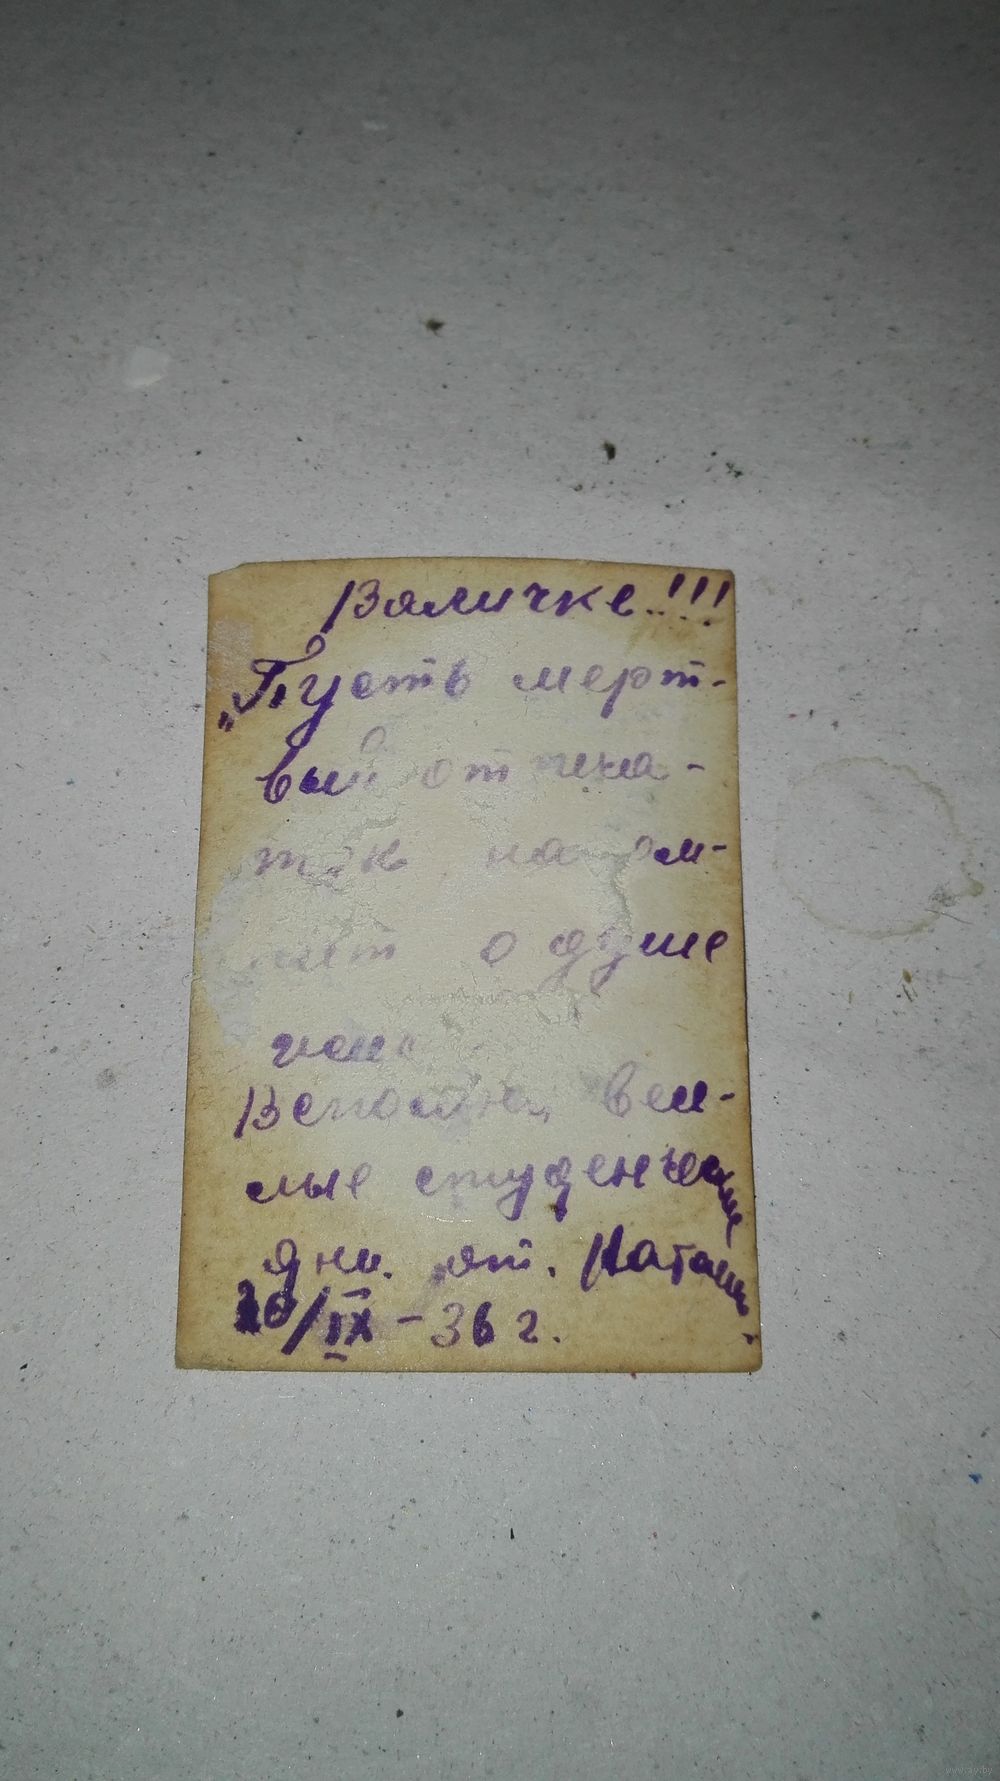 Валичке!!!
„Пусть мерт-
вый отпеча-
ток напом-
нит о душе
Вспомни, весе-
лые студенческие
дни. от. Наташи.
/IX - 36 г.
www.ay.by